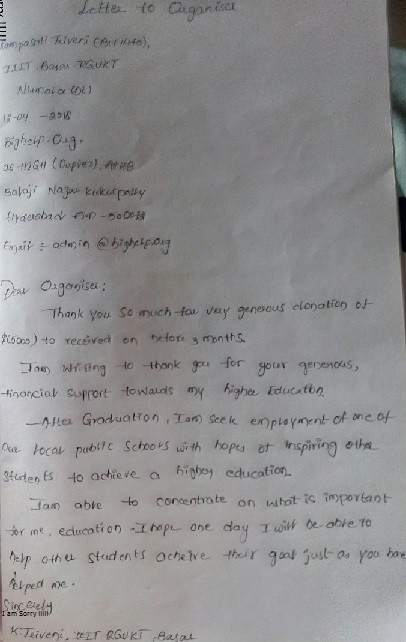 Letter to Organiser
Triveni
IIIT Basar RGUKT
-04 -2018
Bighelp.Org.
Balaji Nagar Kukutpally
Hyderabad
Email : admin @bighelp.Org
Dear Organiser;
Thank you so much for very generous donation of
to received on before 3 months.
I am writing to thank you for your generous,
financial support towards my higher Education.
- After Graduation, I am seek employment of one of
Our local public Schools with hopes of inspiring other
Students to achieve a higher education.
I am able to concentrate on what is important
for me, education - I hope one day I will be able to
help other students acheive their goal just as you have
helped me.
Sincerely
I am Sorry !!!!!
K. Triveni, IIIT RGUKT, Basar